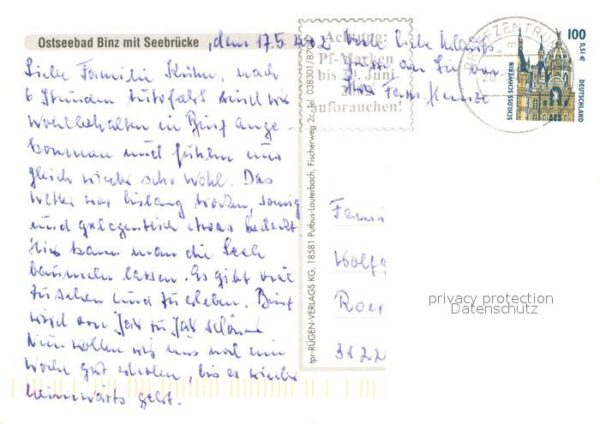 Ostseebad Binz mit Seebrücke, den 17.5.
Liebe Familie Kühn, nach
6 Stunden Autofahrt sind wir
wohlbehalten in Binz ange-
kommen und fühlen uns
gleich wieder sehr wohl. Das
Wetter war bislang trocken, sonnig
und gelegentlich etwas bedeckt
Hier kann man die Seele
baumeln lassen. Es gibt viel
zu sehen und zu erleben. Binz
wird von Jahr zu Jahr schöner
Nun wollen wir uns noch ein
Woche gut erholen, bis es wieder
heimwärts geht.
viele liebe
Achtung:
Pf-Marken
bis 30. Juni
aufbrauchen!
BRIEFZENTRUM
100
0,51€
SCHLOSS SCHWERIN
DEUTSCHLAND
tpr-RÜGEN-VERLAGS KG, 18581 Putbus-Lauterbach, Fischerweg 2c, Tel. 038301/
Fami
Wolfg
privacy protection
Datenschutz